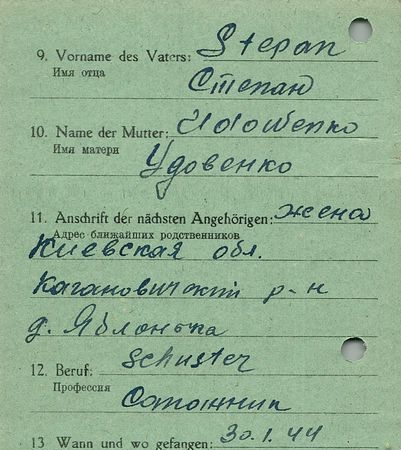 9. Vorname des Vaters: Stepan
Имя отца
Степан
10. Name der Mutter: Udowenko
Имя матери
Удовенко
11. Anschrift der nächsten Angehörigen: жена
Адрес ближайших родственников
Киевская обл.
Кагановичский р-н
д. Яблонька
12. Beruf: Schuster
Профессия
Сапожник
13 Wann und wo gefangen: 30.1.44